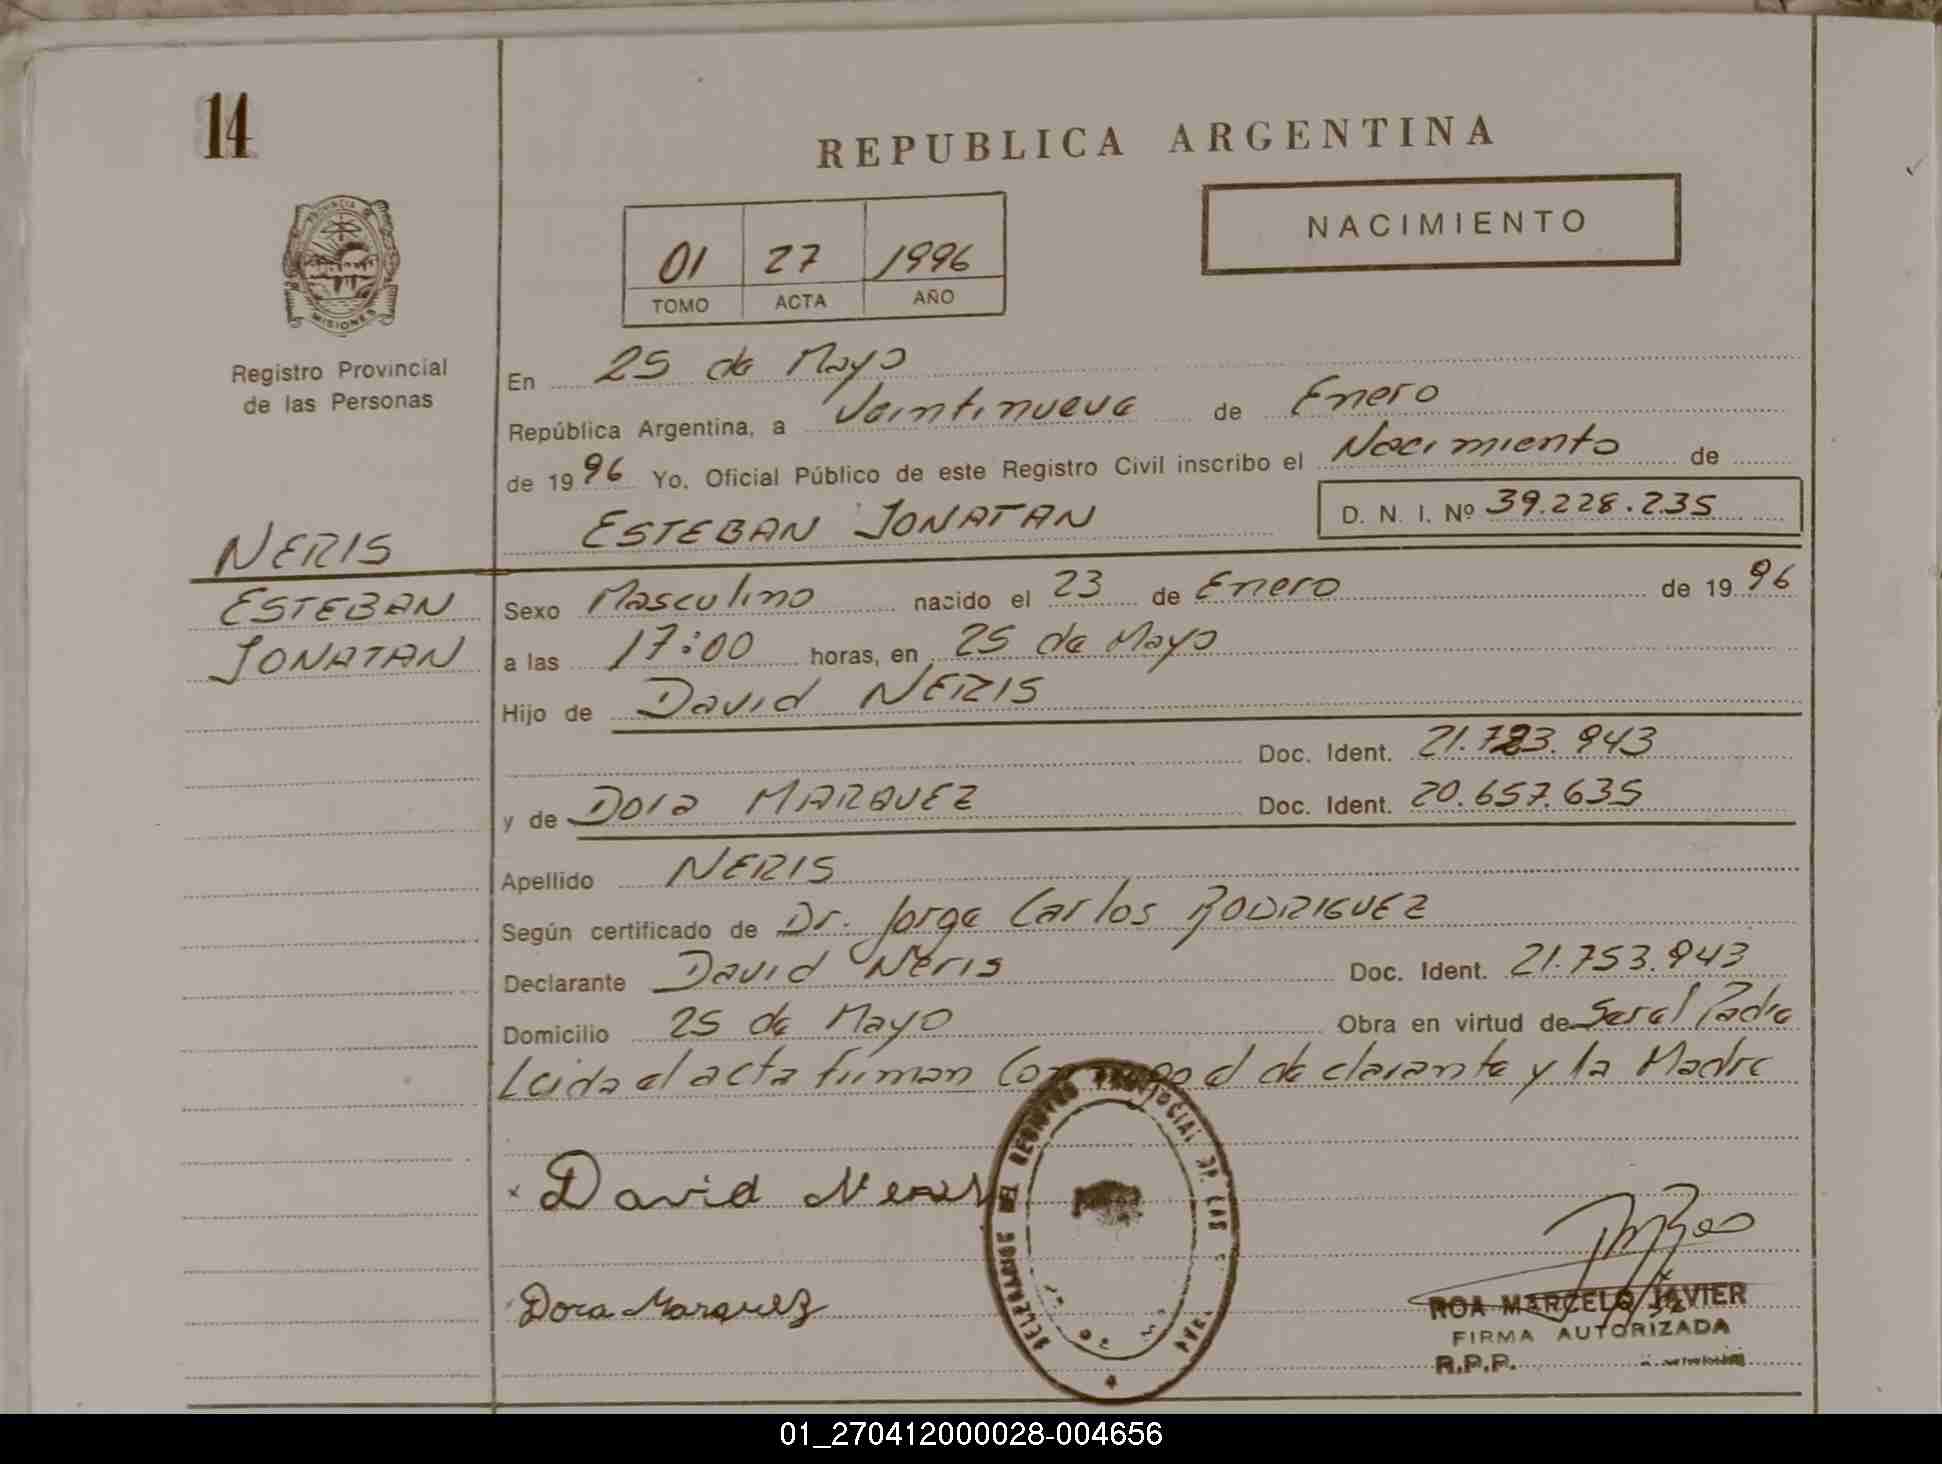 14
REPUBLICA ARGENTINA
NACIMIENTO
01 27 1996
TOMO ACTA AÑO
PROVINCIA DE
MISIONES
Registro Provincial
de las Personas
En 25 de Mayo
República Argentina, a Veintinueve de Enero
de 1996 Yo, Oficial Público de este Registro Civil inscribo el Nacimiento de
ESTEBAN JONATAN D. N. I. Nº 39.228.235
NERIS
ESTEBAN
JONATAN
Sexo Masculino nacido el 23 de Enero de 1996
a las 17:00 horas, en 25 de Mayo
Hijo de David NERIS
Doc. Ident. 943
y de Dora MARQUEZ Doc. Ident. 20.657.635
Apellido NERIS
Según certificado de Dr. Jorge Carlos RODRIGUEZ
Declarante David Neris Doc. Ident. 21.753.943
Domicilio 25 de Mayo Obra en virtud de Ser el Padre
Leida el acta firman Conmigo el declarante y la Madre
x David Neris
Dora Marquez
REGISTRO PROVINCIAL DE LAS
ROA MARCELO JAVIER
FIRMA AUTORIZADA
R.P.P.
01_270412000028-004656